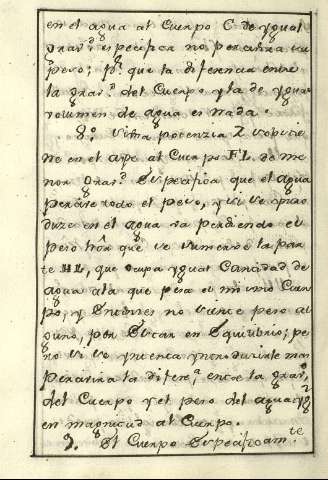 en el agua al Cuerpo C de ygual
grav.d especifica no perdiera su
peso; p.r que la diferencia entre
la grav.d del Cuerpo y la de ygual
volumen de agua es nada.
8.º Vltima potenzia Z sostie
ne en el ayre al Cuerpo FL de me
nor grav.d Especifica que el agua
perdere todo el peso, y si se intro
duze en el agua va perdiendo el
peso hasta que se sumerge la par
te HL, que ocupa ygual Cantidad de
agua a la que pesa el mismo Cuer
po, y Entonces no tiene peso al
guno, por Estar en Equilibrio; pe
ro si se yntenta yntroduzirle mas
perdiera la difer.a entre la grav.d
del Cuerpo y el peso del agua yg.l
en magnitud al Cuerpo.
9. El Cuerpo Especificam.te